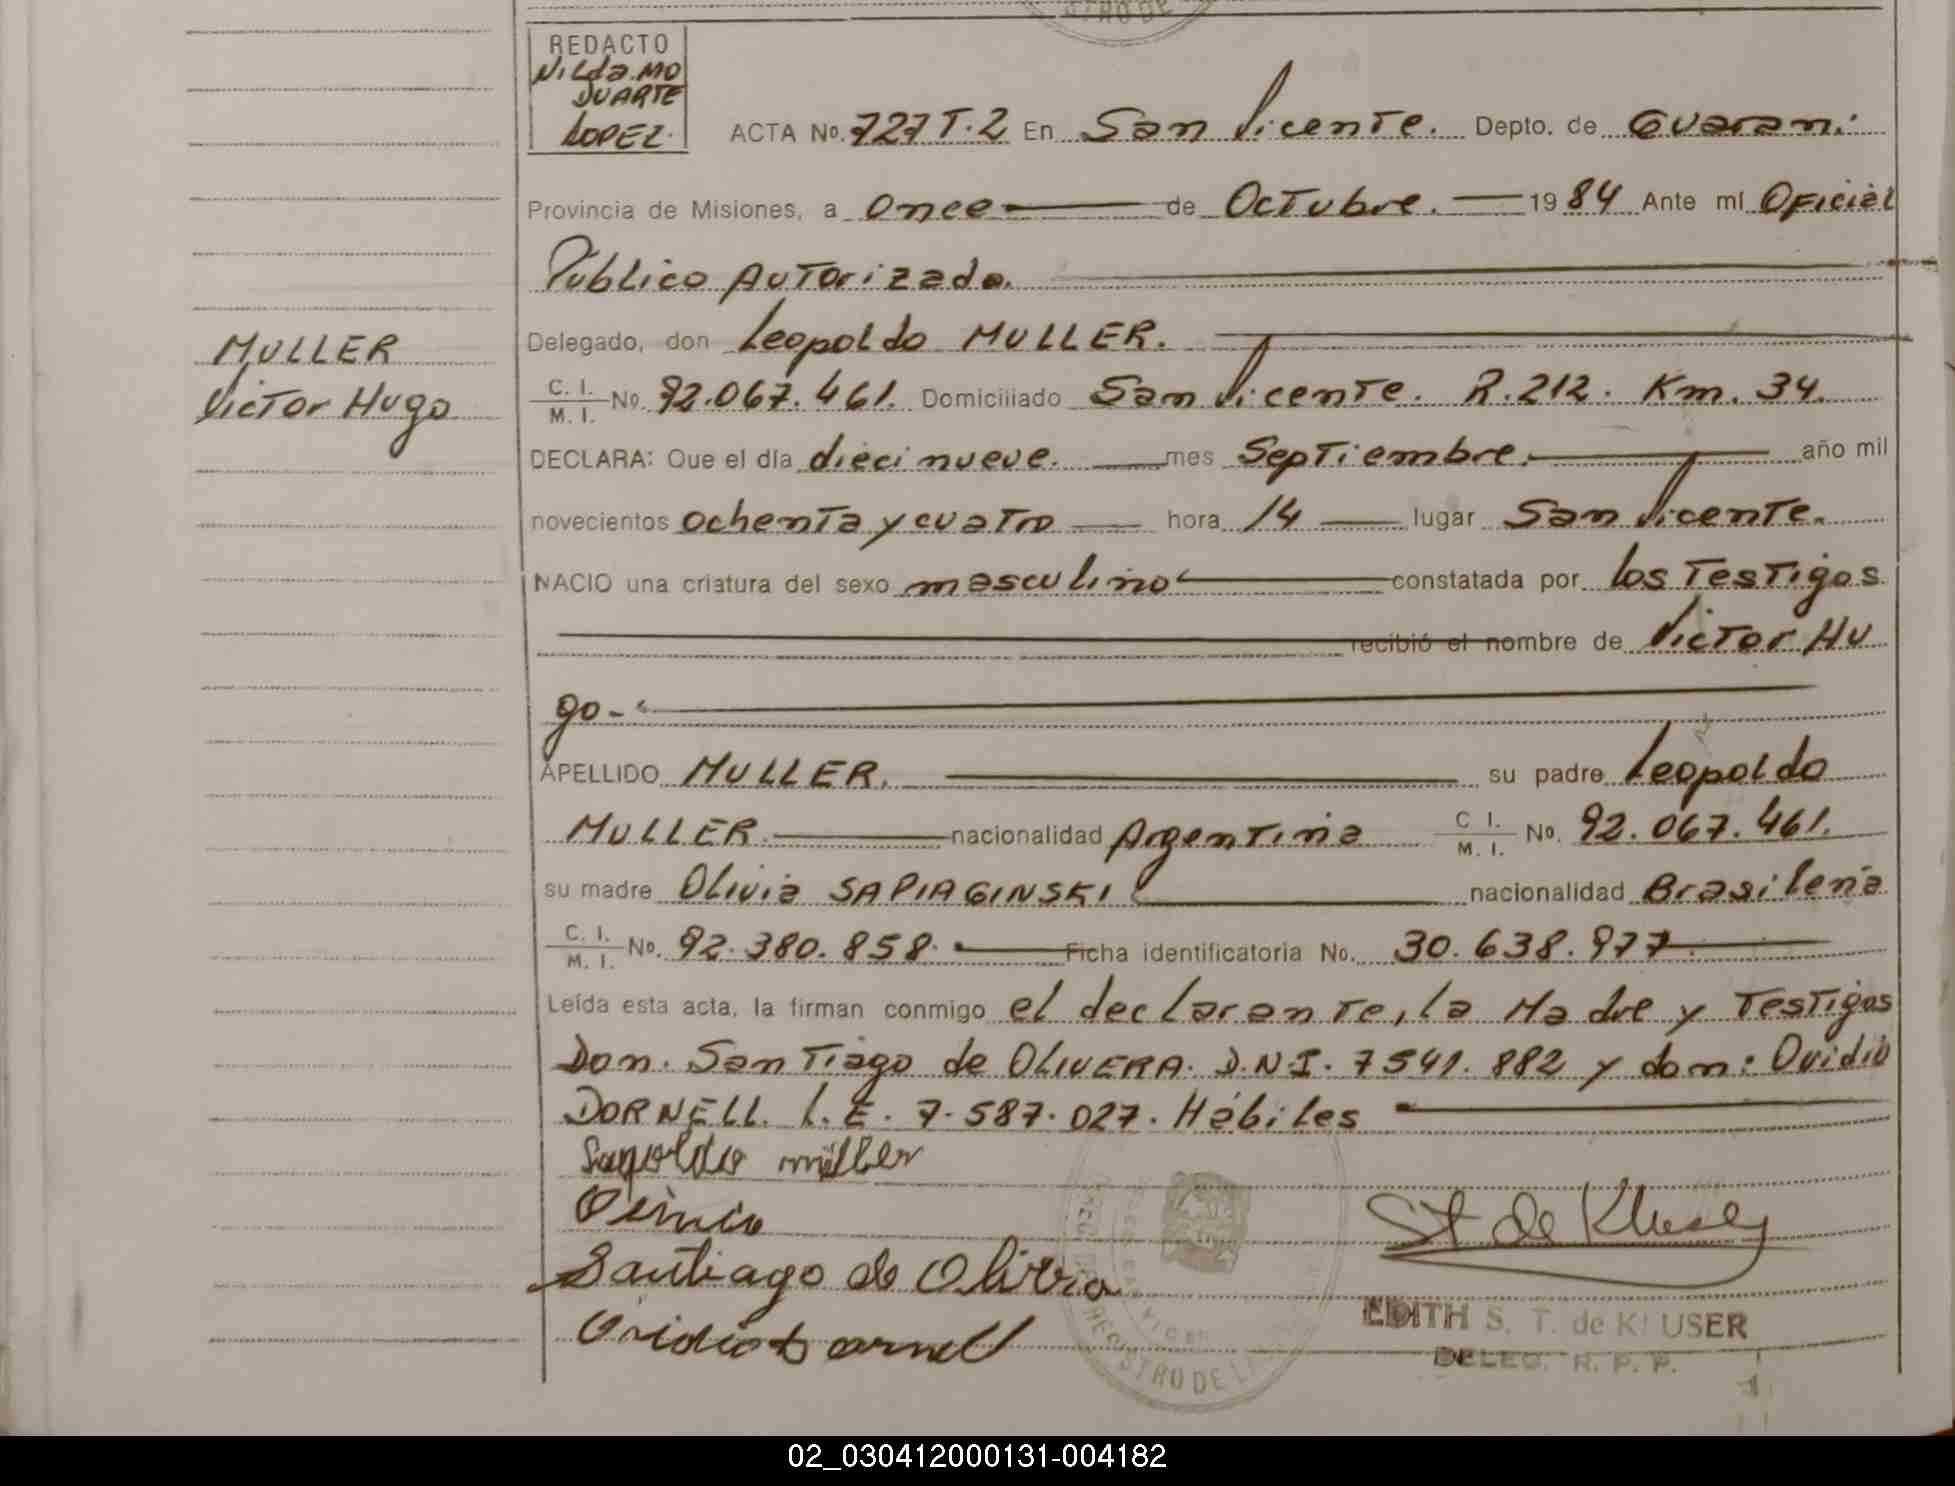 STRO DE
REDACTO
Nilda. MO
DUARTE
LOPEZ.
ACTA No. 727 T. 2 En San Vicente. Depto. de Guaraní
Provincia de Misiones, a Once de Octubre. 1984 Ante mí Oficial
Público Autorizado.
Delegado, don Leopoldo MULLER.
MULLER
Victor Hugo
C. I. / M. I. No. 92.067.461. Domiciliado San Vicente. R. 212. Km. 34.
DECLARA: Que el día diecinueve. mes Septiembre. año mil
novecientos ochenta y cuatro hora 14 lugar San Vicente.
NACIO una criatura del sexo masculino constatada por los Testigos
recibió el nombre de Victor Hu
go-
APELLIDO MULLER. su padre Leopoldo
MULLER. nacionalidad Argentina C. I. / M. I. No. 92.067.461.
su madre Olivia SAPIAGINSKI nacionalidad Brasileña
C. I. / M. I. No. 92.380.858. Ficha identificatoria No. 30.638.977.
Leída esta acta, la firman conmigo el declarante, la Madre y Testigos
Don. Santiago de OLIVERA. D.N.I. 7541.882 y don: Ovidio
DORNELL. L.E. 7.587.027. Hábiles
Leopoldo müller
Santiago de Olivera
St de Kluser
Ovidio Dornell
EDITH S. T. de KLUSER
DELEG. R. P. P.
REGISTRO DE LA
02_030412000131-004182